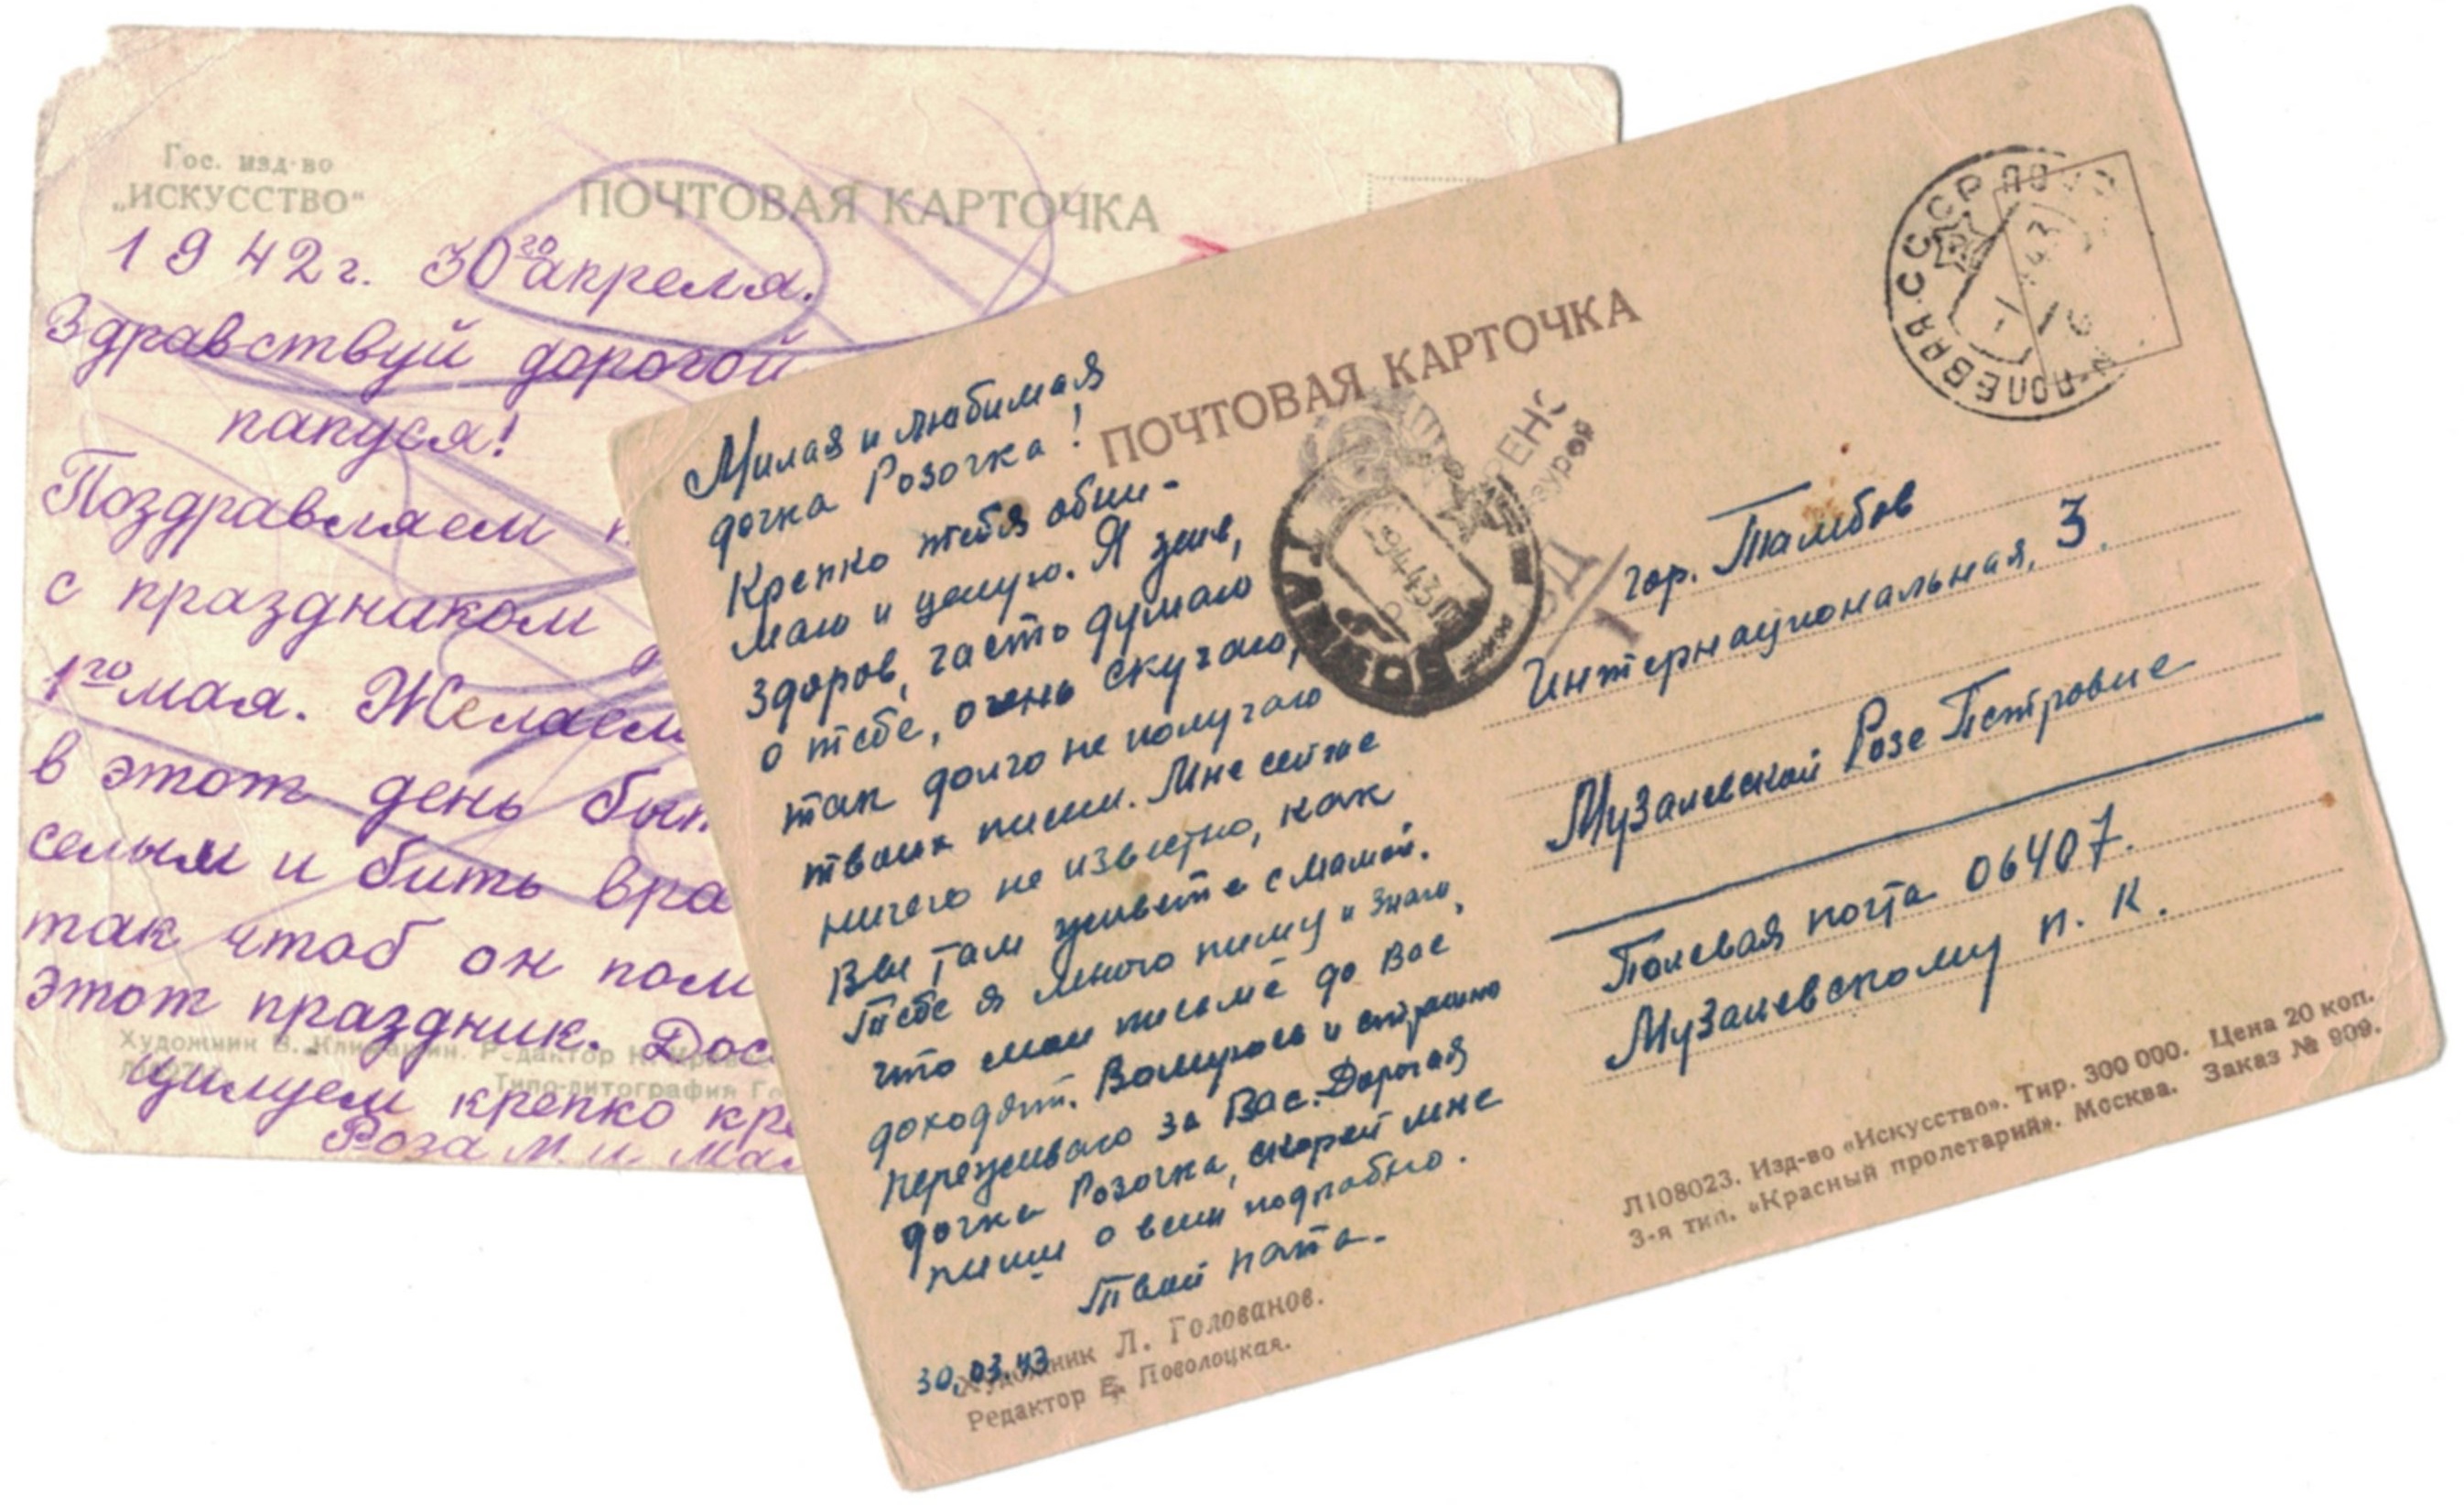 Гос. изд-во
„ИСКУССТВО“
ПОЧТОВАЯ КАРТОЧКА
1942г. 30го апреля.
Здравствуй дорогой
папуся!
Поздравляем
с праздником
1го мая. Желаем
в этот день бы
селым и бить вра
так чтоб он пом
этот праздник. Дос
Целуем крепко кре
Роза М. и. мам
Типо-литография Г
ПОЧТОВАЯ КАРТОЧКА
Милая и любимая
дочка Розочка!
Крепко тебя обни-
маю и целую. Я жив,
здоров, часто думаю
о тебе, очень скучаю,
так долго не получаю
твоих писем. Мне сейчас
ничего не известно, как
Вы там живете с мамой.
Тебе я много пишу и знаю,
что мои письма до Вас
доходят. Волнуюсь и страшно
переживаю за Вас. Дорогая
дочка Розочка, скорей мне
пиши о всем подробно.
Твой папа.
30.03.43
Художник Л. Голованов.
Редактор Е. Поволоцкая.
ПОЛЕВАЯ СССР ПО
гор. Тамбов
Интернациональная, 3.
Музалевской Розе Петровне
Полевая почта 06407.
Музалевскому п. К.
Л108023. Изд-во «Искусство». Тир. 300 000. Цена 20 коп.
3-я тип. «Красный пролетарий». Москва. Заказ № 909.